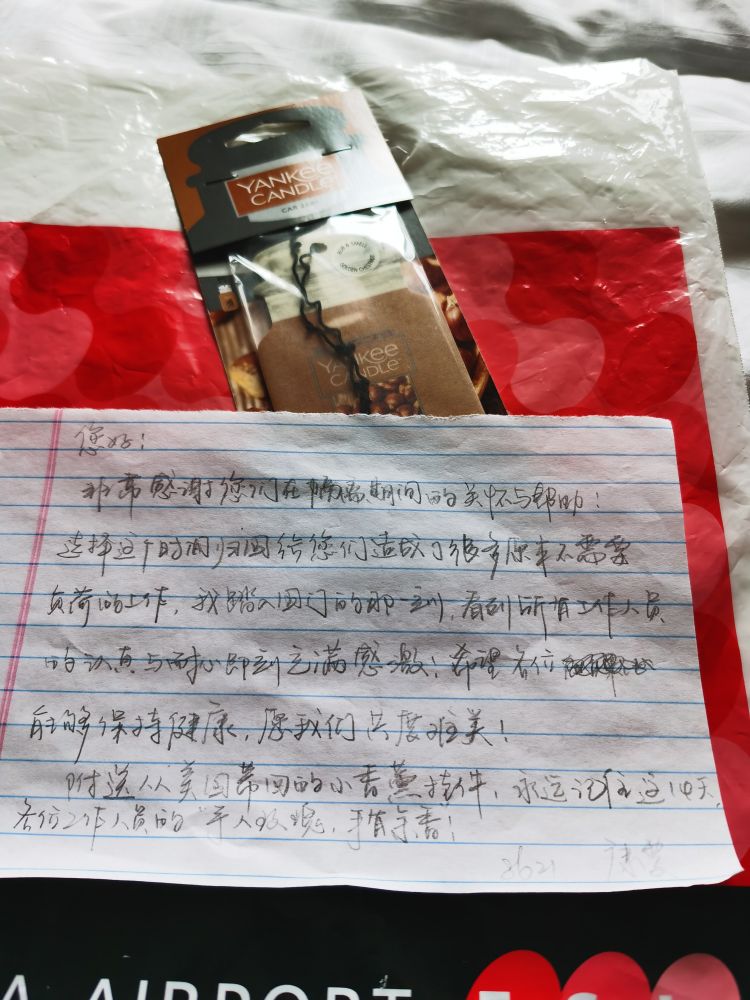 YANKEE
CANDLE
CAR JAR
GOLDEN CHESTNUT
YANKEE
CANDLE
您好！
非常感谢您们在隔离期间的关怀与帮助！
选择这个时间归国给您们造成了很多原来不需要
负荷的工作，我踏入国门的那一刻，看到所有工作人员
的认真与耐心即刻充满感激！希望各位
能够保持健康，愿我们共度难关！
附送从美国带回的小香薰挂件，永远记住这14天，
各位工作人员的“予人玫瑰，手有余香！
8621
A AIRPORT